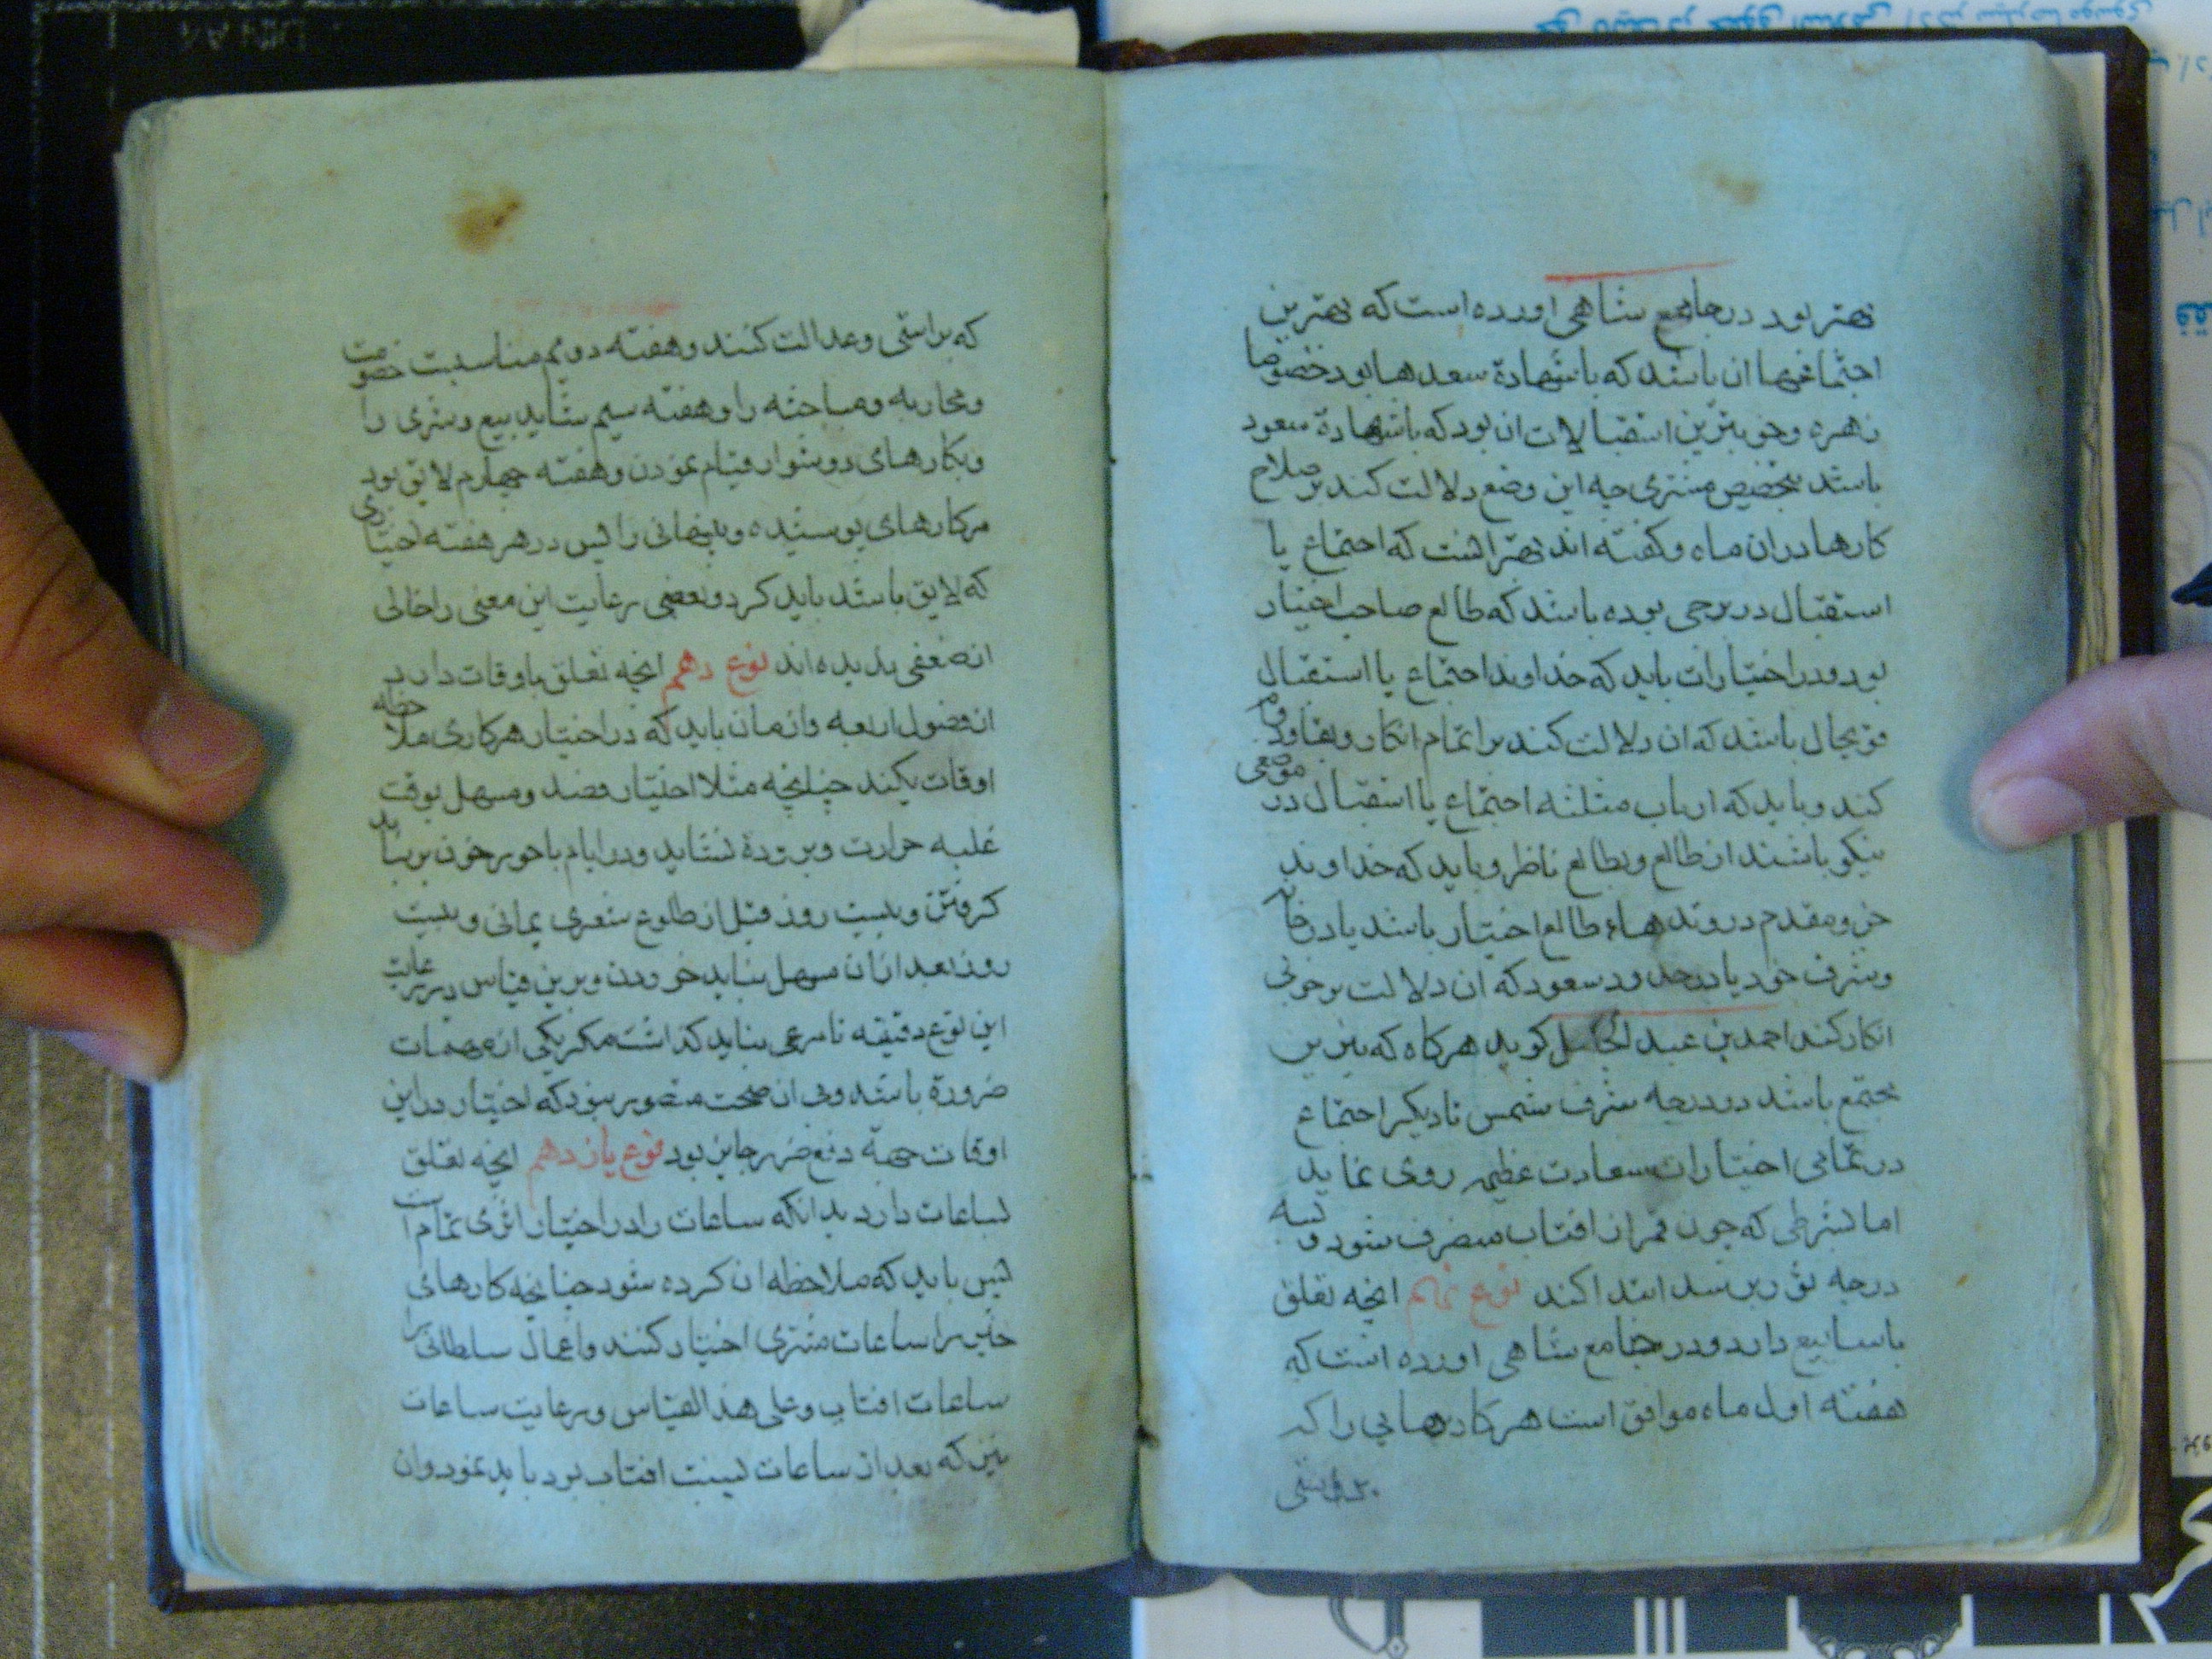 بهتر بود در جامع شاهی اورده است که بهترین
اجتماعها ان باشد که باشهادة سعدها بود خصوصا
زهره و خوبترین استقبالات ان بود که باشهادة سعود
باشد بتخصیص مشتری چه این وضع دلالت کند بر صلاح
کارها دران ماه و گفته اند بهتر انست که اجتماع یا
استقبال در برجی بوده باشد که طالع صاحب اختیار
بود و در اختیارات باید که خداوند اجتماع یا استقبال
قویحال باشد که ان دلالت کند بر اتمام انکار و بقا و دوام
کند و باید که ارباب مثلثه اجتماع یا استقبال در موضعی
نیکو باشند از طالع و بطالع ناظر و باید که خداوند
جزو مقدم در وتدهاء طالع اختیار باشد یا در خانه
و شرف خود یا در حدود سعود که ان دلالت بر خوبی
انکار کند احمد بن عبد الجلیل کوید هرکاه که نیرین
مجتمع باشد در درجه شرف شمس تا دیکر اجتماع
در تمامی اختیارات سعادت عظیم روی نماید
اما بشرطی که چون قمر از افتاب منصرف شود و بسه
درجه نور برسد ابتدا کند نوع نهم انچه تعلق
باسابیع دارد و در جامع شاهی اورده است که
هفته اول ماه موافق است هر کارهایی را که
براستی
که براستی و عدالت کنند و هفته دویم مناسبت خصومت
و محاربه و مباحثه را و هفته سیم شاید بیع و شری را
و بکارهای دوشوار قیام نمودن و هفته چهارم لایق بود
مر کارهای پوشیده و پنهانی را پس در هر هفته اختیاری
که لایق باشد باید کرد و بعضی رعایت این معنی را خالی
از ضعفی ندیده اند نوع دهم انچه تعلق باوقات دارد
از فصول اربعه و ازمان باید که در اختیار هرکاری ملاحظه
اوقات بکند چنانچه مثلا اختیار فصد و مسهل بوقت
غلبه حرارت و برودة نشاید و در ایام باحور خون نباید
کرفتن و بیست روز قبل از طلوع شعری یمانی و بیست
روز بعد ازان مسهل نباید خوردن و برین قیاس در رعایت
این نوع دقیقه نامرعی نباید کذاشت مکر یکی از مهمات
ضرورة باشد و بی ان صحت متصور نبود که اختیار در این
اوقات جهة دفع ضرر جایز بود نوع یازدهم انچه تعلق
بساعات دارد بدانکه ساعات را در اختیار اثری تمام است
پس باید که ملاحظه ان کرده شود چنانچه کارهای
خیر را ساعات مشتری اختیار کنند و اعمال سلطانی را
ساعات افتاب و علی هذا القیاس و رعایت ساعات
نیز که بعد از ساعات نسبت افتاب بود باید نمود و ان